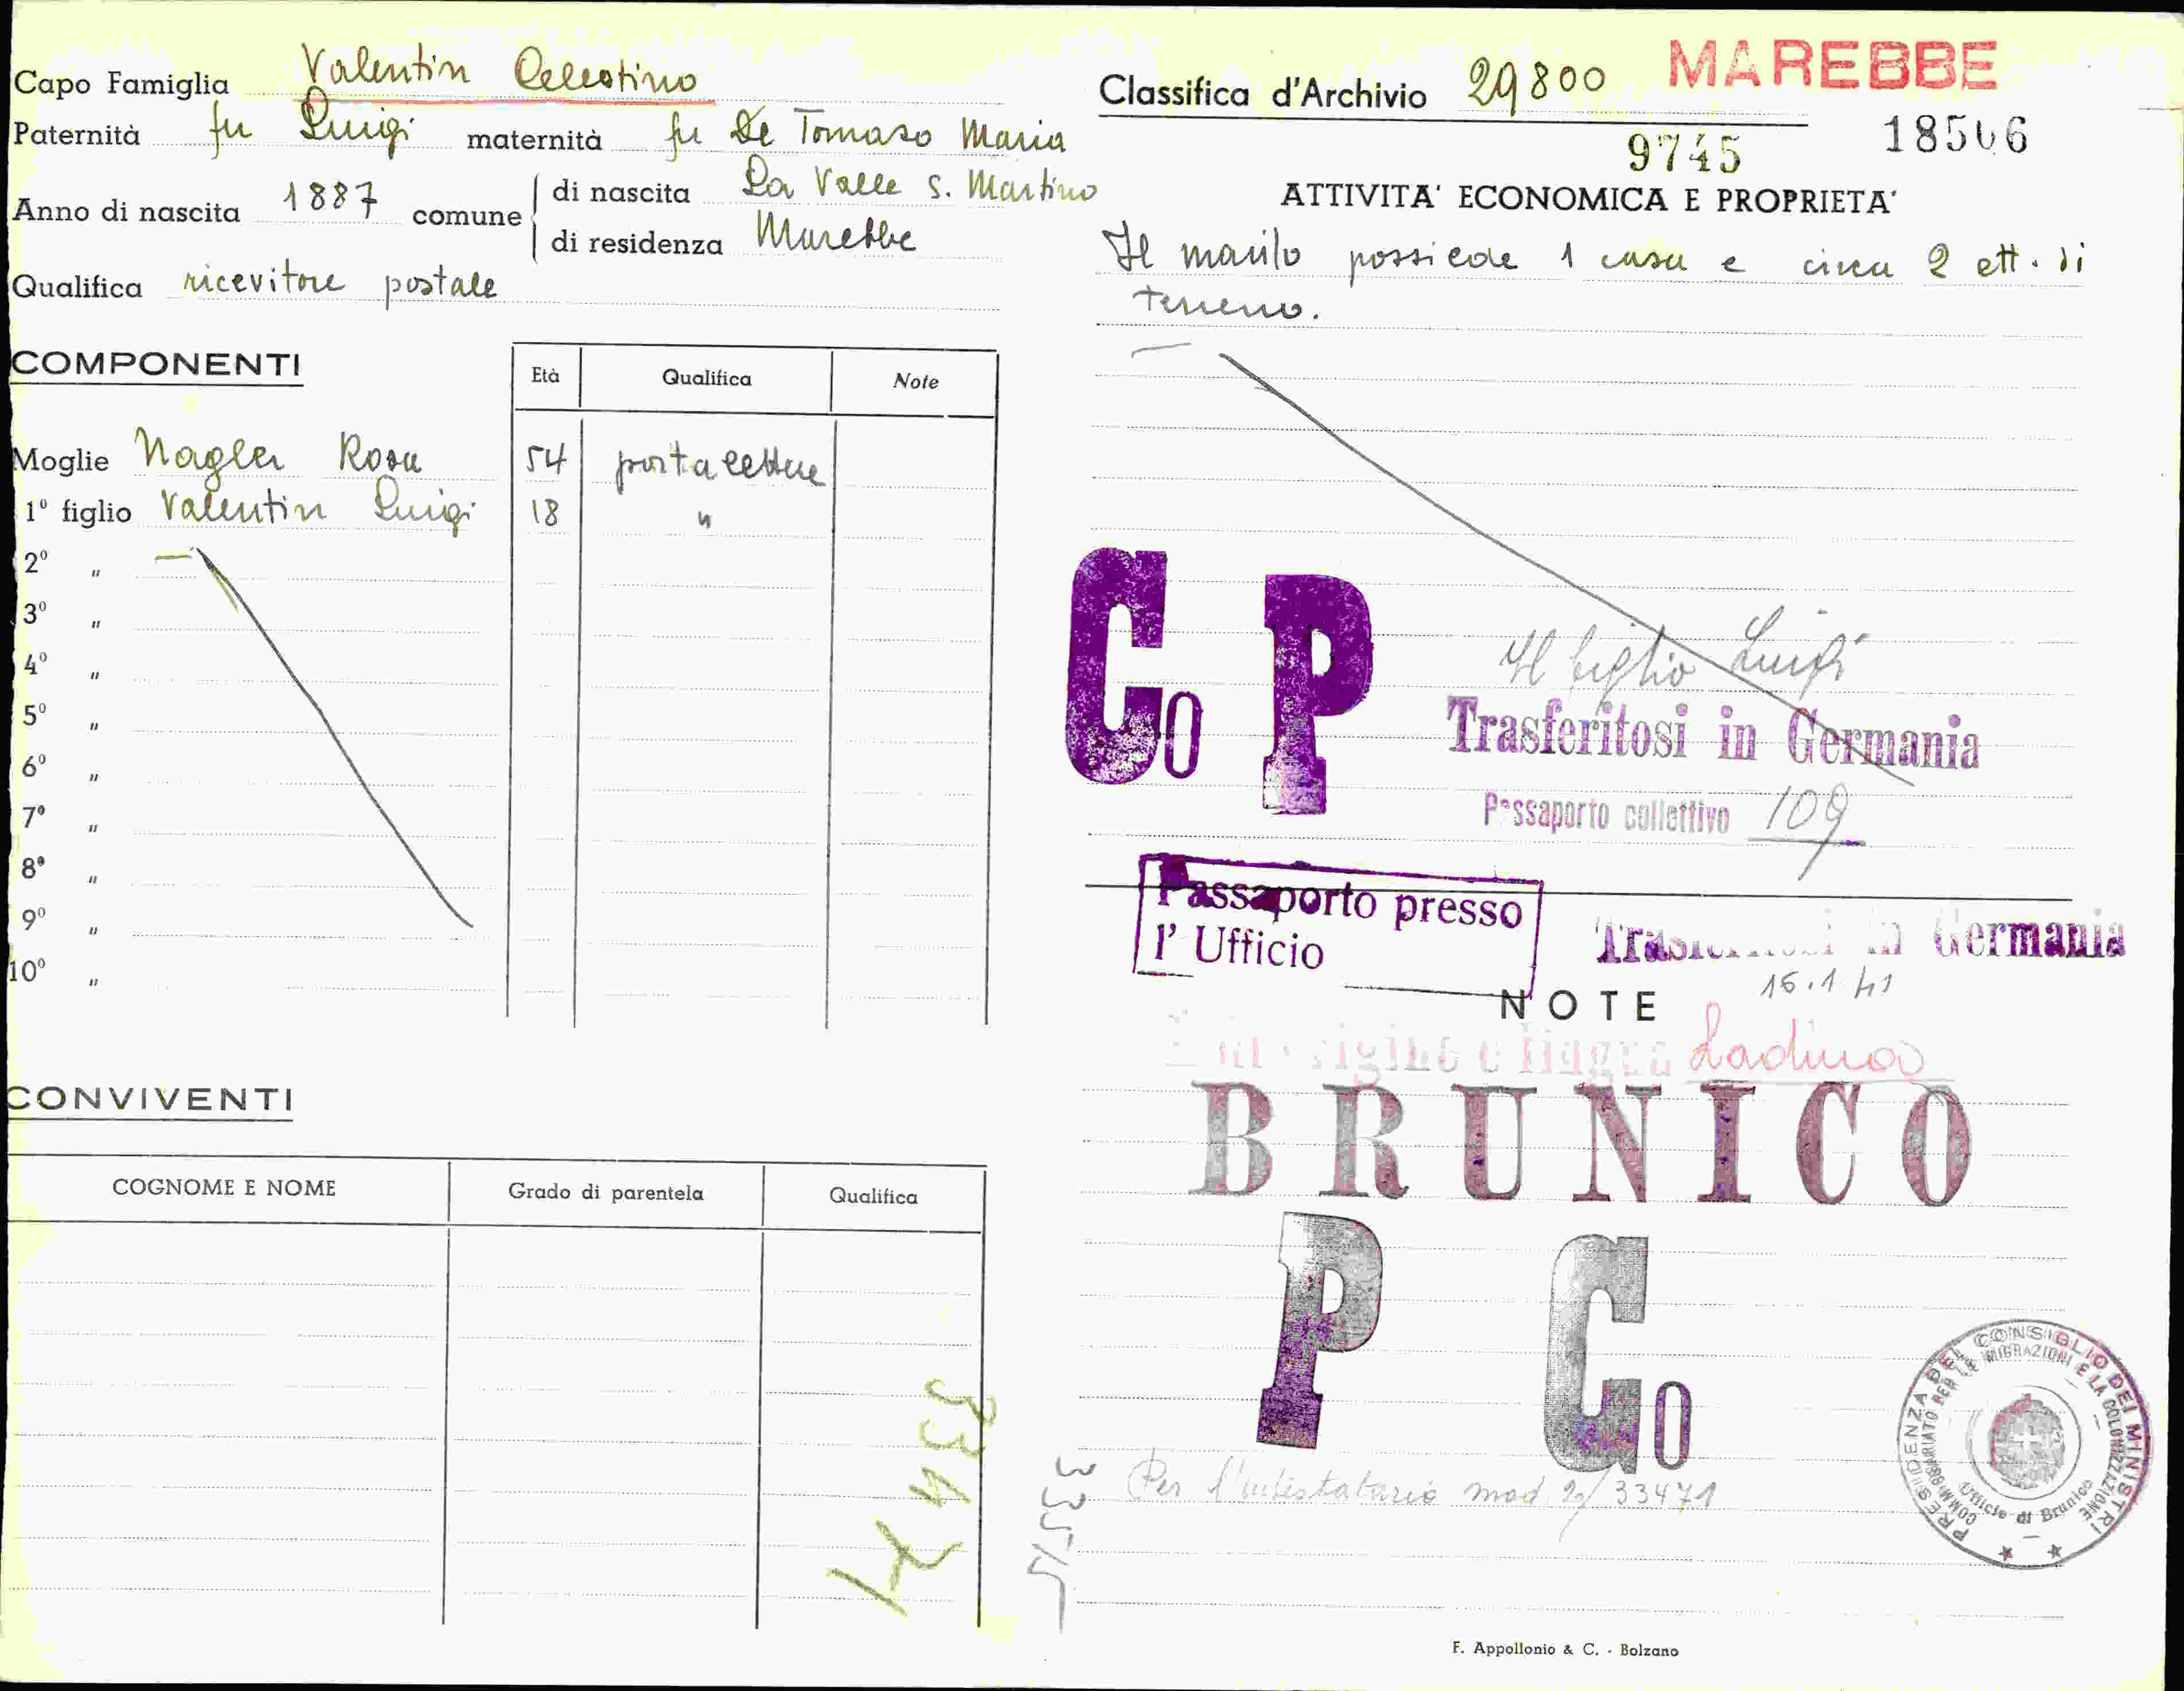 Capo Famiglia Valentin Celestino
Paternità fu Luigi maternità fu De Tomaso Maria
Anno di nascita 1887 comune di nascita La Valle S. Martino
di residenza Marebbe
Qualifica ricevitore postale
COMPONENTI
Età Qualifica Note
Moglie Nagler Rosa 54 porta lettere
1º figlio Valentin Luigi 18 "
2º "
3º "
4º "
5º "
6º "
7º "
8º "
9º "
10º "
CONVIVENTI
COGNOME E NOME Grado di parentela Qualifica
33471
Classifica d'Archivio 29800 MAREBBE
9745 18506
ATTIVITA' ECONOMICA E PROPRIETA'
Il marito possiede 1 casa e circa 2 ett. di
terreno.
Co P
Il figlio Luigi
Trasferitosi in Germania
Passaporto collettivo 109
Passaporto presso
l' Ufficio
Trasferitosi in Germania
16.1.41
NOTE
origine e lingua Ladina
BRUNICO
P Co
Per l'intestatario mod 29/33471
PRESIDENZA DEL CONSIGLIO DEI MINISTRI
COMMISSARIATO PER LE MIGRAZIONI E LA COLONIZZAZIONE
Ufficio di Brunico
F. Appollonio & C. - Bolzano